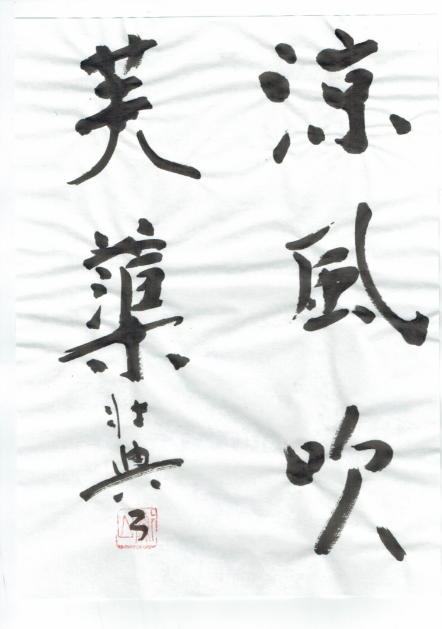 涼風吹
芙蕖
壮典